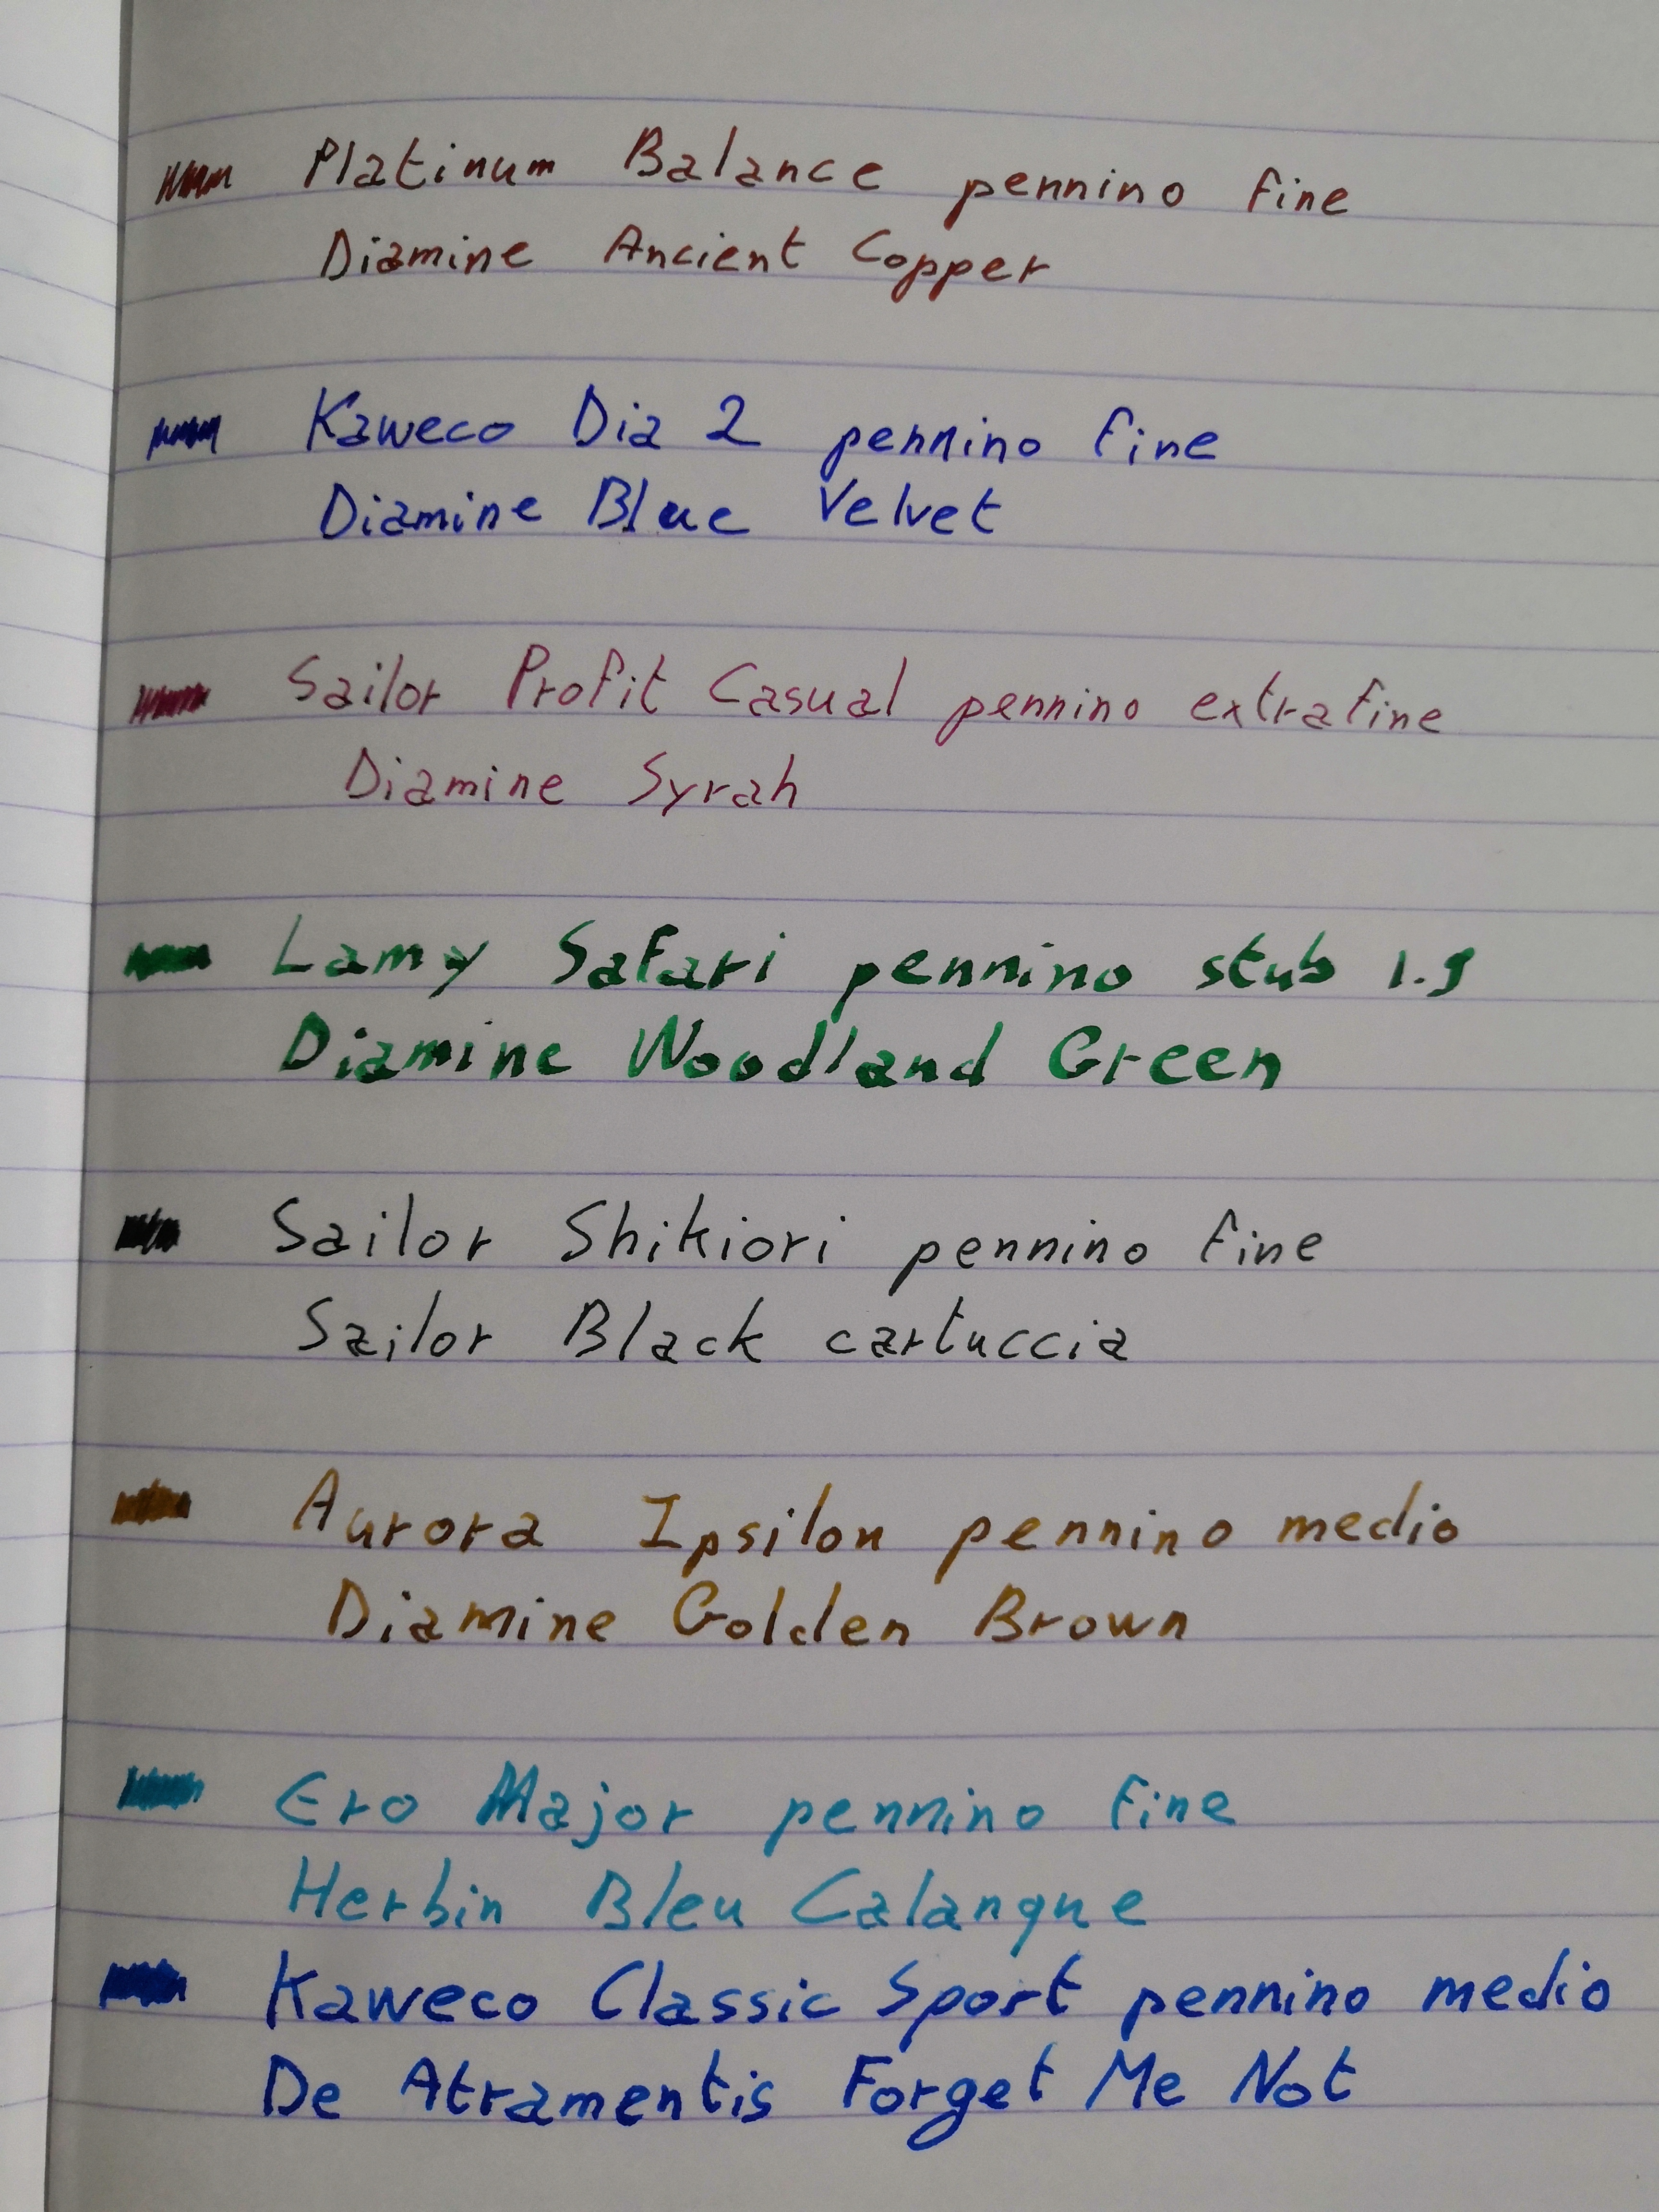 Platinum Balance pennino fine
Diamine Ancient Copper
Kaweco Dia 2 pennino fine
Diamine Blue Velvet
Sailor Profit Casual pennino extrafine
Diamine Syrah
Lamy Safari pennino stub 1.9
Diamine Woodland Green
Sailor Shikiori pennino fine
Sailor Black cartuccia
Aurora Ipsilon pennino medio
Diamine Golden Brown
Ero Major pennino fine
Herbin Bleu Calanque
Kaweco Classic Sport pennino medio
De Atramentis Forget Me Not